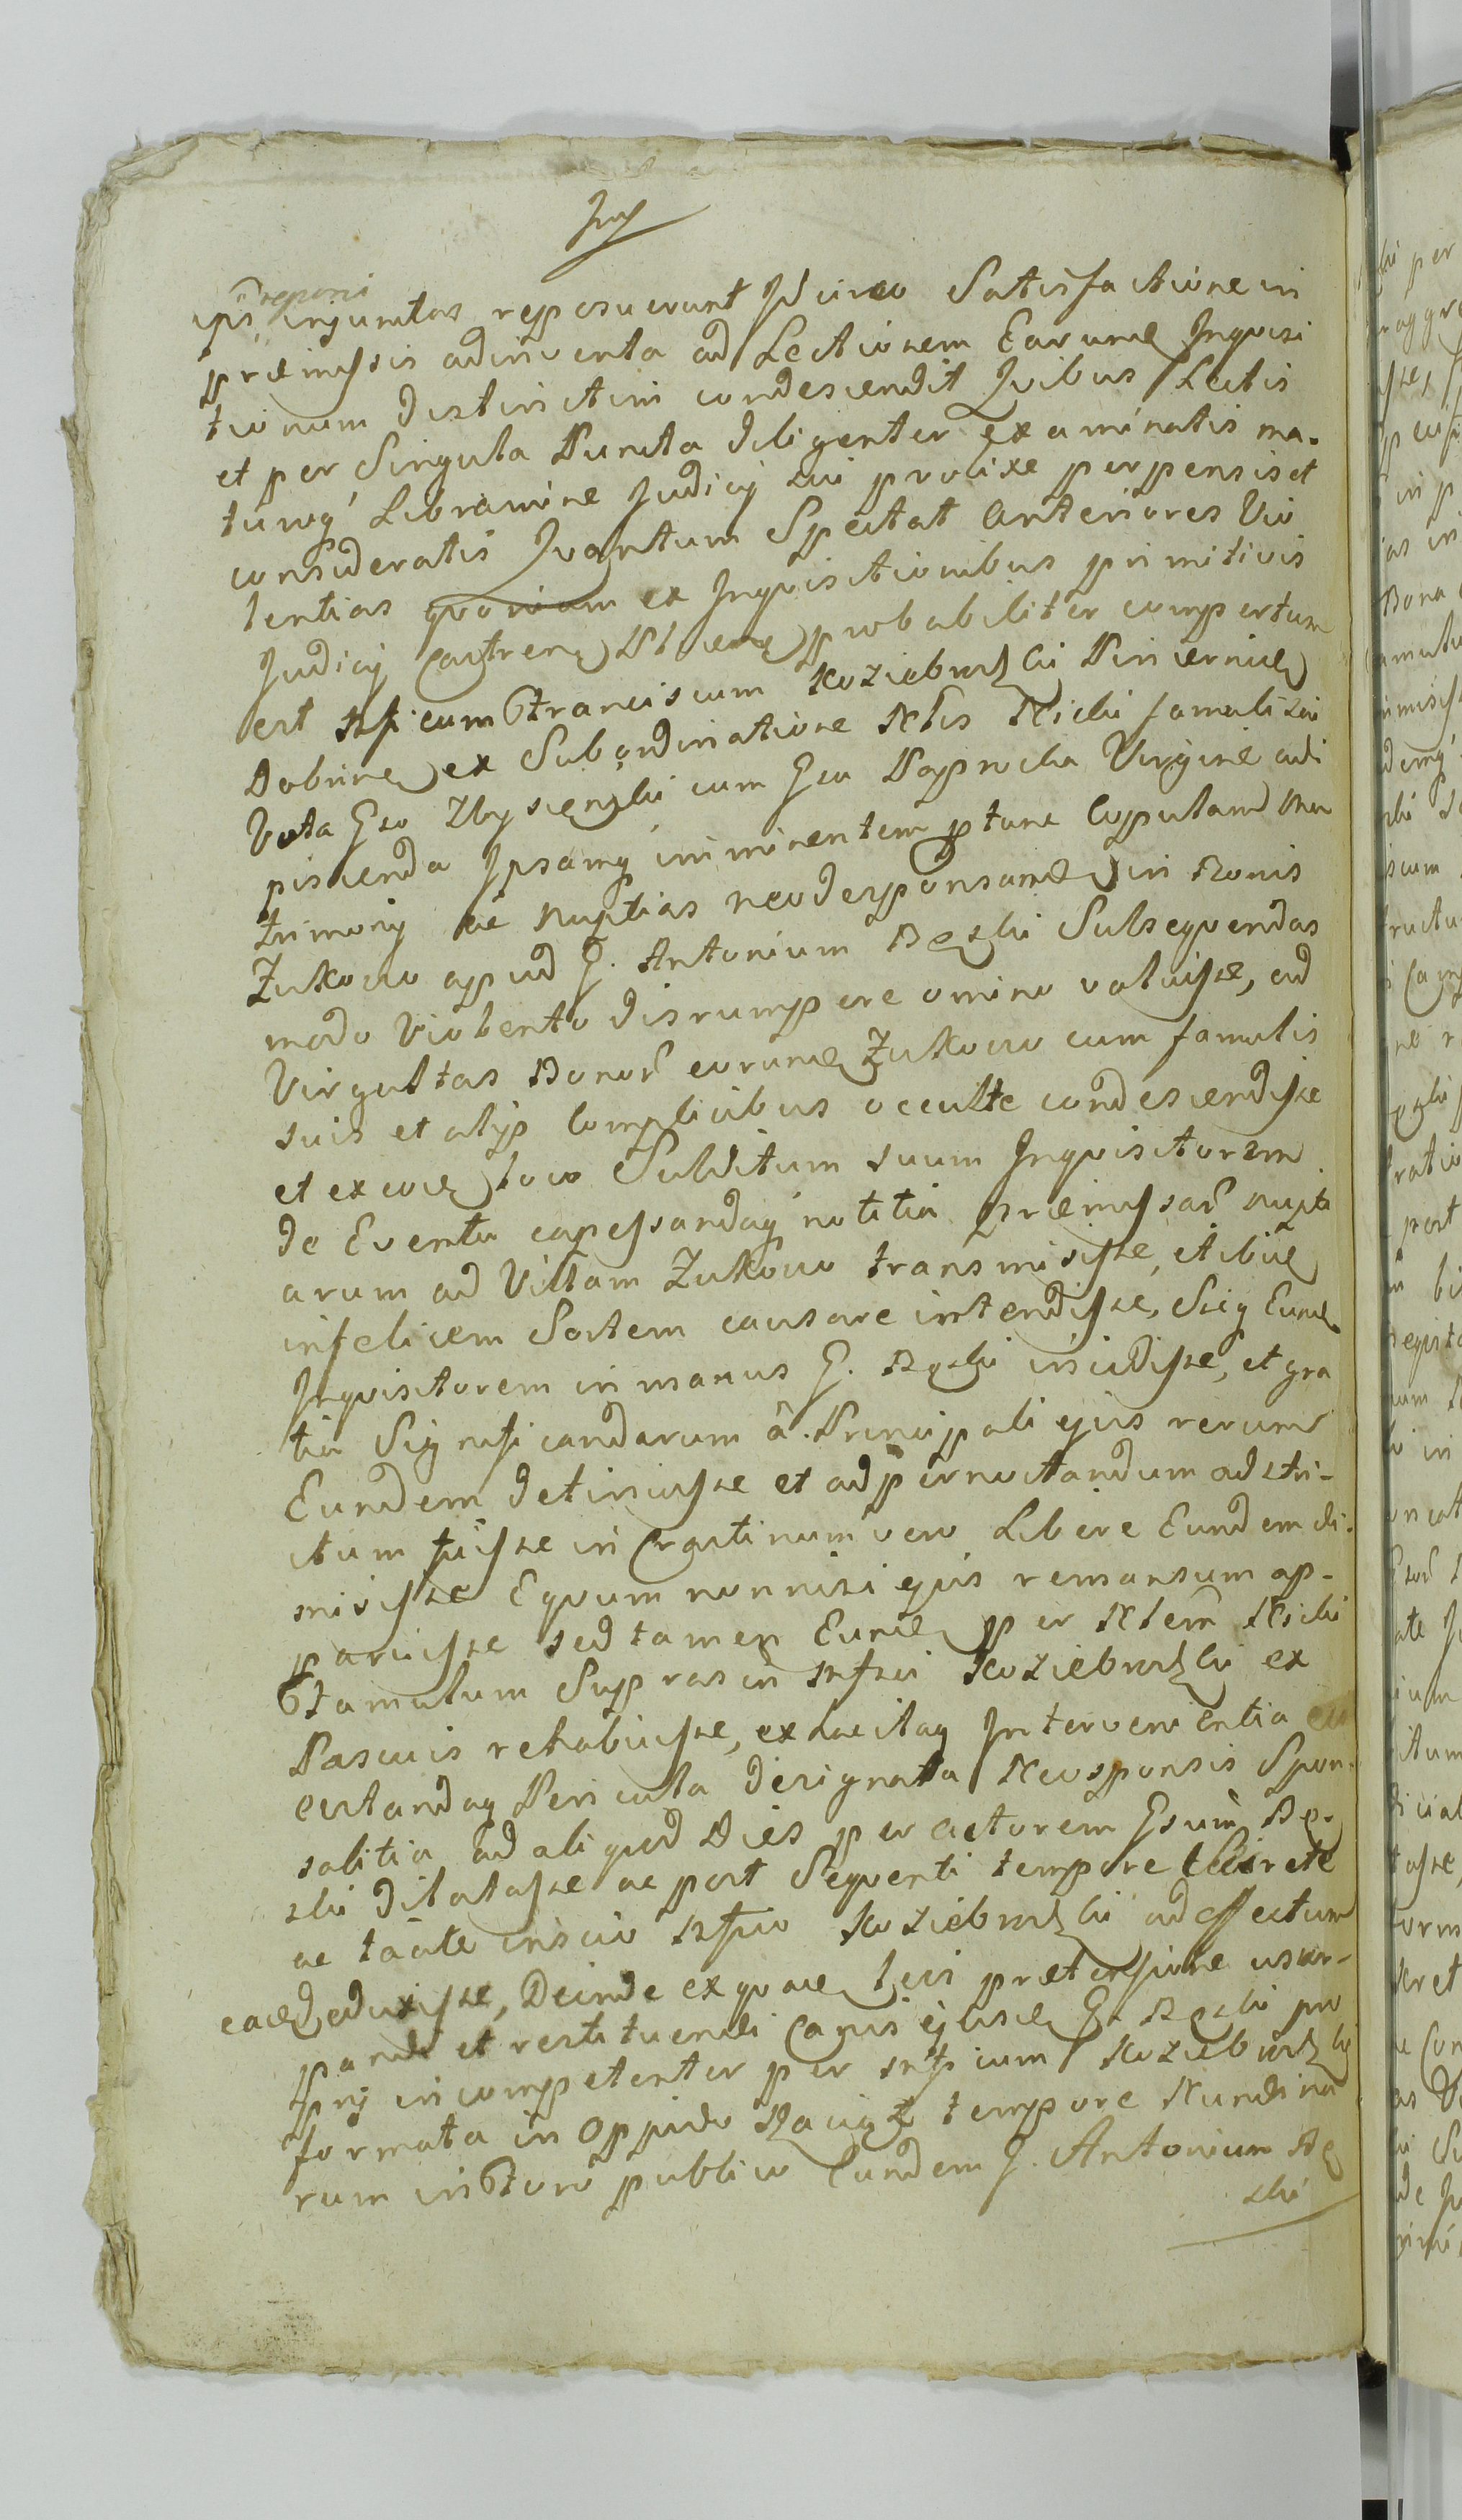 reponi
ips injunctas reposuerunt Judicio Satisfactione in
præmissis adinventa ad Lectionem Earund Inquisi
tionum distinctim condescendit Quibus Lectis
et per Singula Puncta diligenter examinatis ma-
turoq Libramine Judicij sui prolixe perpensis et
consideratis Quantum Spectat Anteriores Vio
lentias quoniam ex Inquisitionibus primitivis
Judicij Castren probabiliter compertum
est Mficum Franciscum Koziebrodzki Pincernid
Dobrinen ex Subordinatione Nlis Nicki famuli sui
Vota Gso Zbysienski cum Gsa Paprocka Virgine adi
piscenda Ipsamq imminentem ptunc Copulam Ma
trimonij ac nuptias neodesponsand in Bonis
Zukowo apud G. Antonium Bęski Subsequendas
modo Violento disrumpere omino voluisse, ad
Virgultas Bonor eorund Zukowo cum famulis
suis et alijs Complicibus occulte condescendisse
et ex eod loco Subditum suum Inquisitorem
de Eventu capessandaq notitia præmissar nupti
arum ad Villam Zukowo transmisisse, et ibid
infelicem Sortem causare intendisse, Sicq Eund
Inquisitorem in manus G. Bęski incidisse, et gra
tia Significandarum a Principali ejus rerum
Eundem detinuisse et ad pernoctandum adstri-
ctum fuisse in Crastinum vero Libere Eundem di-
misisse Equum nonnisi ejus remansum ap-
paruisse sed tamen Eund per Nlem Nicki
Famulum Suprascri Mfici Koziebrodzki ex
Pascuis rehabuisse, ex tacitaq Intervenientia
evitandaq Pericula designata Neosponsis Spon-
salitia ad aliquod Dies per actorem Gsum Bę-
ski dilatasse ac post Sequenti tempore secrete
ac tacite inscio Mfico Koziebrodzki ad effectum
ead eduxisse, Deinde ex quavis levi prætensione usur-
pandi et restituendi Canis ejusd G. Bęski pro
prij incompetenter per Mficum Koziebrodzki
formata in Oppido Raciąż tempore Nundina
rum in Foro publico Eundem G. Antonium Bę
ski